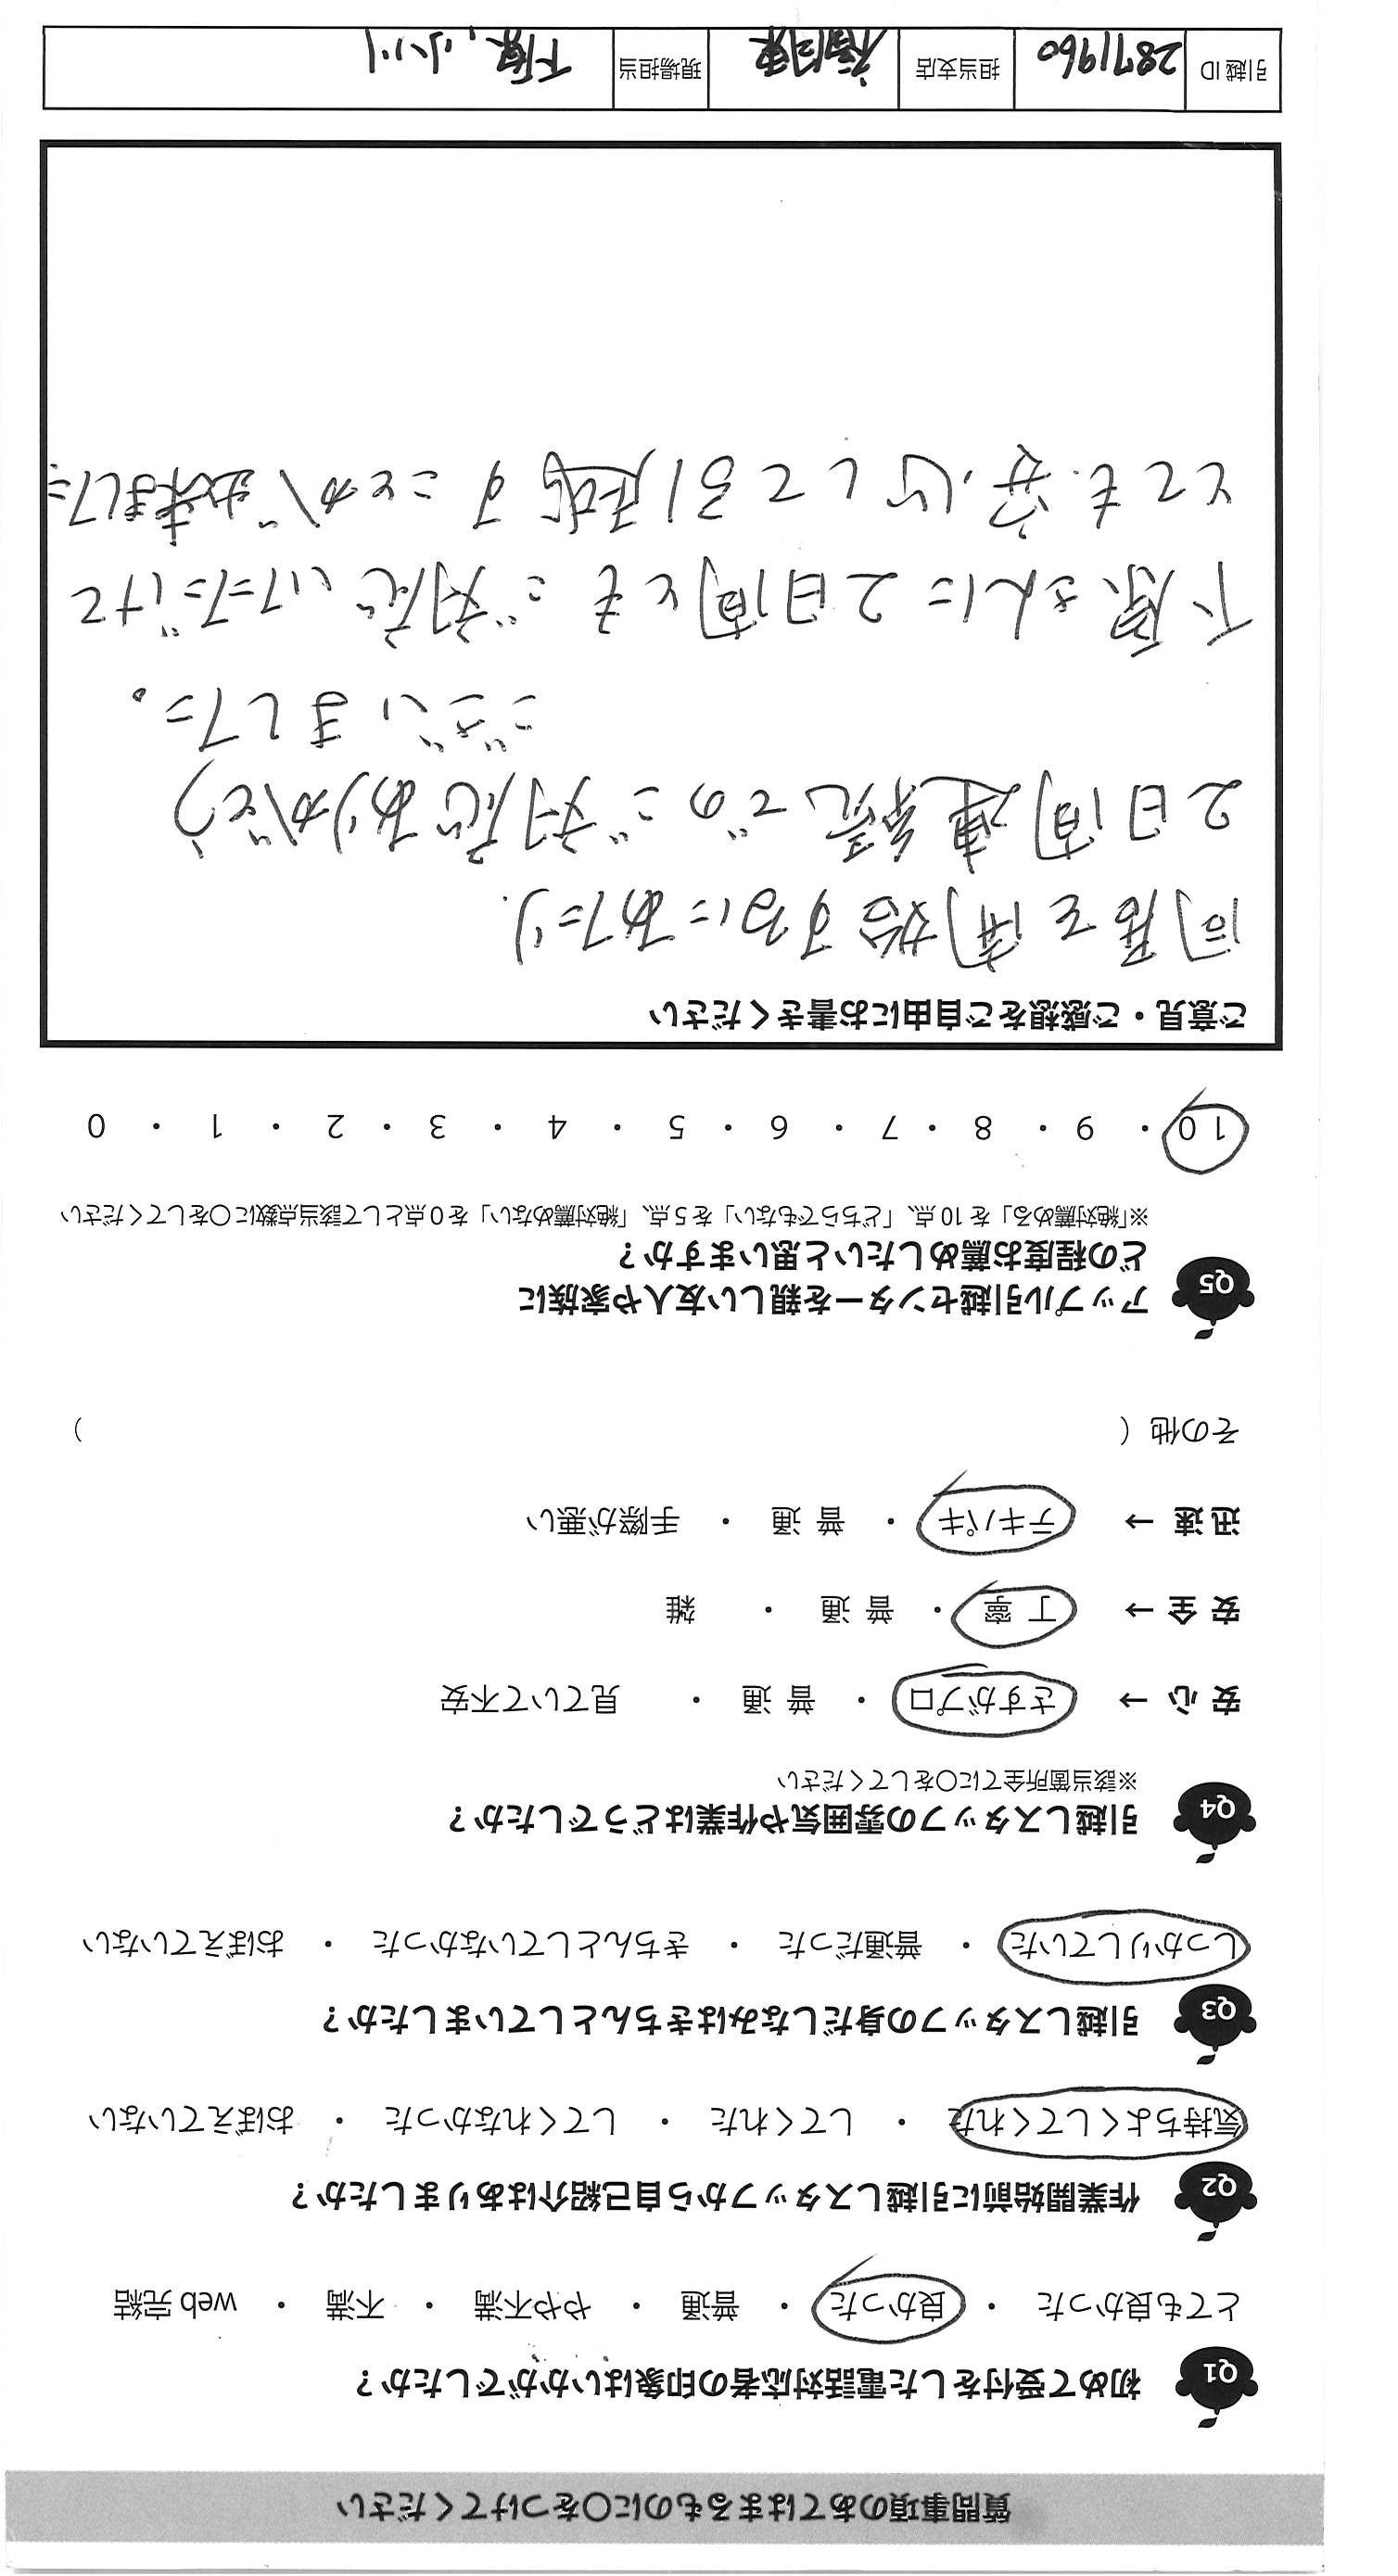 質問事項のあてはまるものに○をつけてください
Q1 初めて受付をした電話対応者の印象はいかがでしたか？
とても良かった ・ 良かった ・ 普通 ・ やや不満 ・ 不満 ・ web完結
Q2 作業開始前に引越しスタッフから自己紹介はありましたか？
気持ちよくしてくれた ・ してくれた ・ してくれなかった ・ おぼえていない
Q3 引越しスタッフの身だしなみはきちんとしていましたか？
しっかりしていた ・ 普通だった ・ きちんとしていなかった ・ おぼえていない
Q4 引越しスタッフの雰囲気や作業はどうでしたか？
※該当箇所全てに○をしてください
安心 → さすがプロ ・ 普通 ・ 見ていて不安
安全 → 丁寧 ・ 普通 ・ 雑
迅速 → テキパキ ・ 普通 ・ 手際が悪い
その他（ ）
Q5 アップル引越センターを親しい友人や家族に
どの程度お薦めしたいと思いますか？
※「絶対薦める」を10点、「どちらでもない」を5点、「絶対薦めない」を0点として該当点数に○をしてください
10 ・ 9 ・ 8 ・ 7 ・ 6 ・ 5 ・ 4 ・ 3 ・ 2 ・ 1 ・ 0
ご意見・ご感想をご自由にお書きください
同居を開始するにあたり
2日間連続でのご対応ありがとう
ございました。
下原さんに2日間ともご対応いただけて
とても安心して引越すことが出来ました
引越ID 2871960 担当支店 福岡東 現場担当 下原,小川